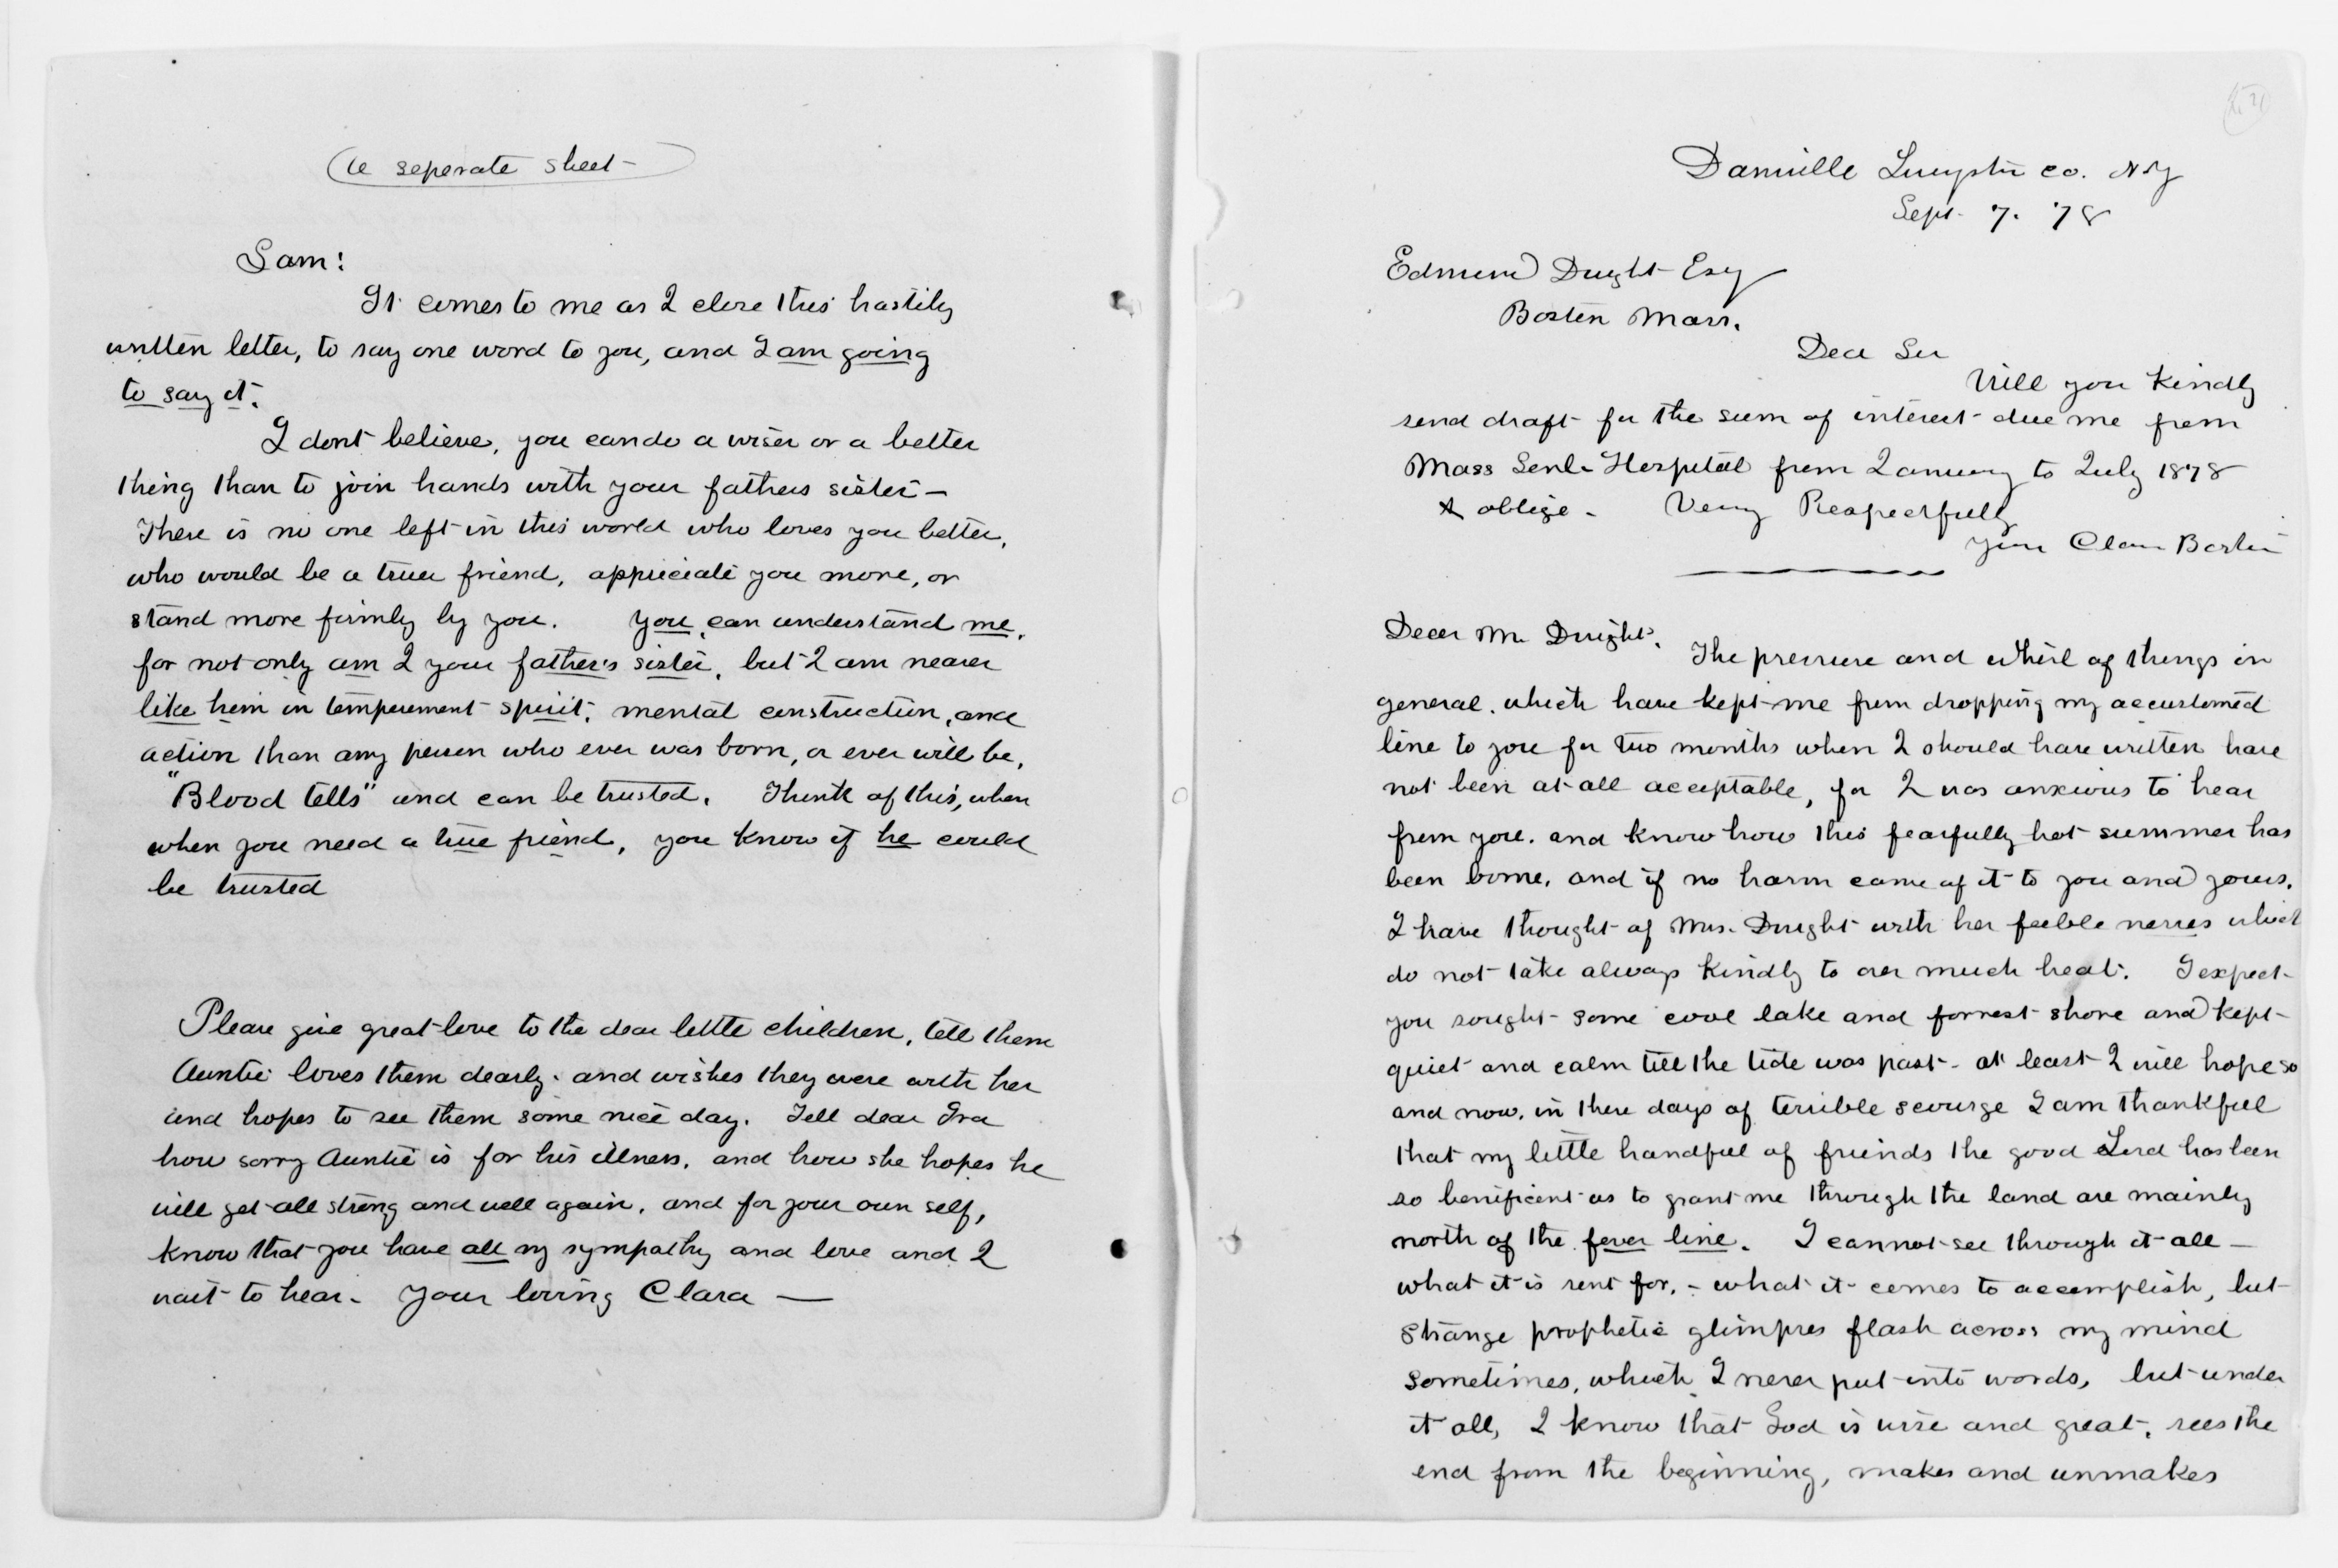 (a seperate sheet)
Sam:
It comes to me as I close this hastily
written letter, to say one word to you, and I am going
to say it.
I dont believe, you can do a wiser or a better
thing than to join hands with your fathers sister –
There is no one left in this world who loves you better,
who would be a truer friend, appreciate you more, or
stand more firmly by you. You can understand me,
for not only am I your father's sister, but I am nearer
like him in temperement spirit, mental construction, and
action than any person who ever was born, or ever will be,
"Blood tells" and can be trusted. Think of this, when
when you need a true friend, you know if he could
be trusted
Please give great love to the dear little children, tell them
Auntie loves them dearly. and wishes they were with her
and hopes to see them some nice day. Tell dear Ira
how sorry Auntie is for his illness, and how she hopes he
will get all strong and well again, and for your own self,
know that you have all my sympathy and love and I
wait to hear. Your loving Clara —
Dansville Livingston co. N Y
Sept. 7. '78
Edmund Dwight Esq
Boston Mass.
Dear Sir
Will you kindly
send draft for the sum of interest due me from
Mass Genl. Hospital from January to July 1878
& oblige. Very Respectfully
Your Clara Barton
Dear Mr Dwight.
The pressure and whirl of things in
general, which have kept me from dropping my accustomed
line to you for two months when I should have written have
not been at all acceptable, for I was anxious to hear
from you. and know how this fearfully hot summer has
been borne, and if no harm came of it to you and yours.
I have thought of Mrs. Dwight with her feeble nerves which
do not take always kindly to over much heat. I expect
you sought some cool lake and forrest shore and kept
quiet and calm till the tide was past - at least I will hope so
and now, in these days of terrible scourge I am thankful
that my little handful of friends the good Lord has been
so benificent as to grant me through the land are mainly
north of the fever line. I cannot see through it all –
what it is sent for, - what it comes to accomplish, but
strange prophetic glimpses flash across my mind
sometimes, which I never put into words, but under
it all, I know that God is wise and great, sees the
end from the beginning, makes and unmakes